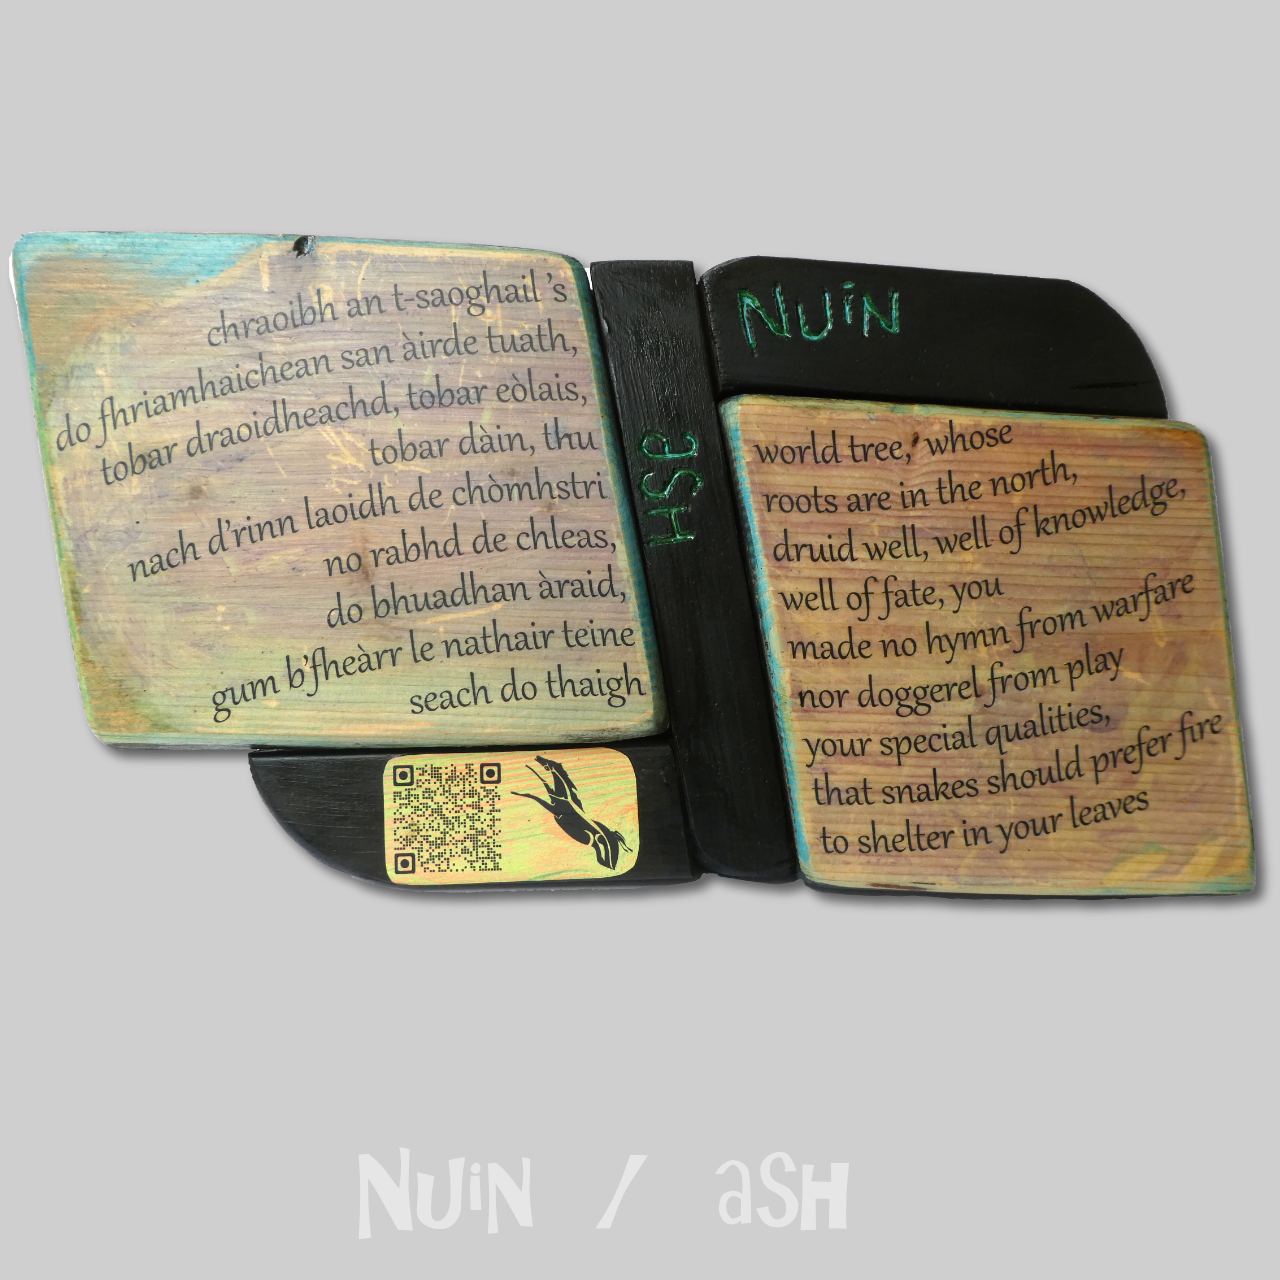 chraoibh an t-saoghail 's
do fhriamhaichean san àirde tuath,
tobar draoidheachd, tobar eòlais,
tobar dàin, thu
nach d'rinn laoidh de chòmhstri
no rabhd de chleas,
do bhuadhan àraid,
gum b'fheàrr le nathair teine
seach do thaigh
aSH
NUiN
world tree, whose
roots are in the north,
druid well, well of knowledge,
well of fate, you
made no hymn from warfare
nor doggerel from play
your special qualities,
that snakes should prefer fire
to shelter in your leaves
NUiN / aSH